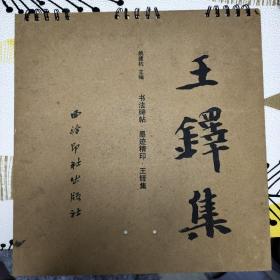 王鐸集
姚建杭 主编
书法碑帖 墨迹精印·王铎集
西泠印社出版社